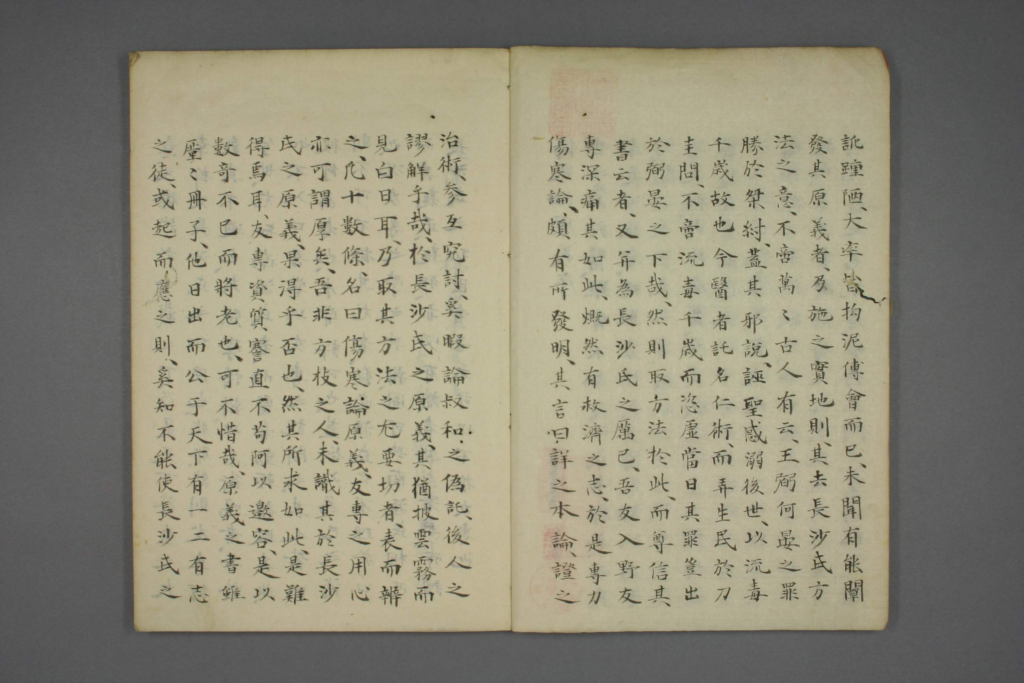 訛踵陋、大率皆拘泥傅會而已、未聞有能闡
發其原義者、乃施之實地則、其去長沙氏方
法之意、不啻萬〻古人有云、王弼何晏之罪
勝於桀紂、蓋其邪說、誣聖惑溺後世、以流毒
千歲故也今醫者託名仁術、而弄生民於刀
圭問、不啻流毒千歲而恣虛當日其罪豈出
於弼晏之下哉、然則取方法於此、而尊信其
書云者、又奚為長沙氏之厲已、吾友入野友
專深痛其如此、慨然有救濟之志、於是專力
傷寒論、頗有所發明、其言曰、詳之本論、證之
治術、參互究討、奚暇論叔和之偽託、後人之
謬解乎哉、於長沙氏之原義、其猶披雲霧而
見白日耳、乃取其方法之尤要切者、表而辨
之、凡十數條、名曰傷寒論原義、友專之用心
亦可謂厚矣、吾非方技之人未識其於長沙
氏之原義、果得乎否也、然其所求如此、是難
得焉耳、友專資質謇直不苟阿以邀容、是以
數奇不已而將老也、可不惜哉、原義之書雖
區〻冊子、他日出而公于天下有一二有志
之徒、或起而應之則、奚知不能使長沙氏之